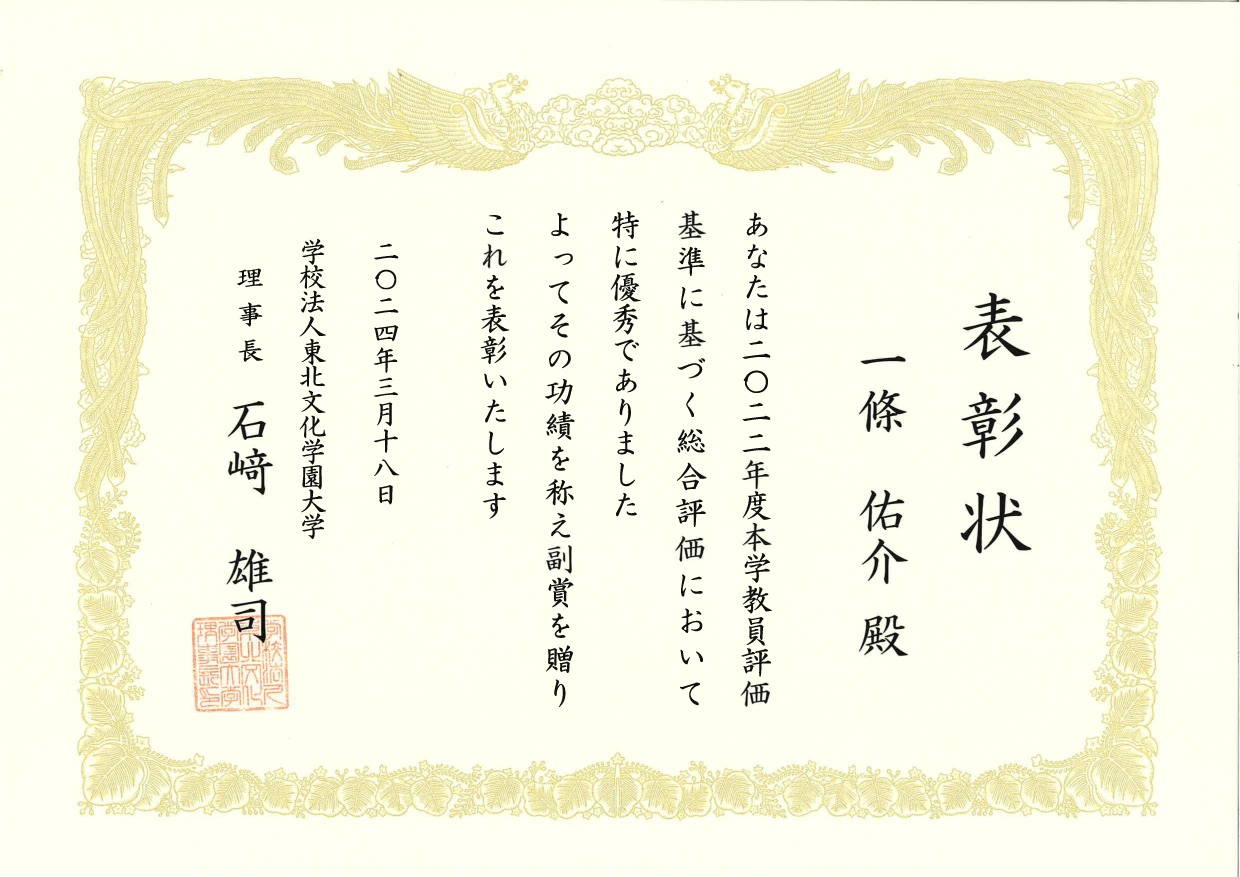 表彰状
一條 佑介 殿
あなたは二〇二二年度本学教員評価
基準に基づく総合評価において
特に優秀でありました
よってその功績を称え副賞を贈り
これを表彰いたします
二〇二四年三月十八日
学校法人東北文化学園大学
理事長 石﨑 雄司